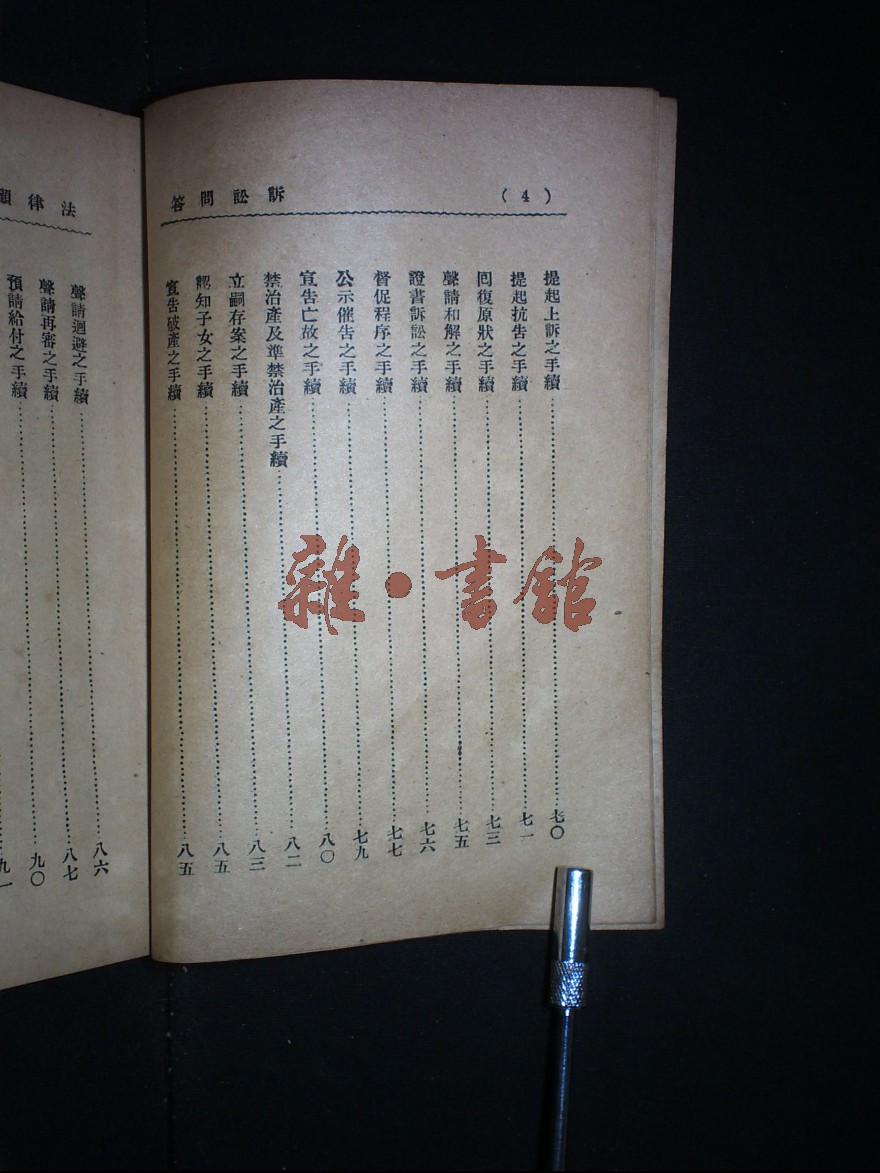 訴訟問答
(4)
提起上訴之手續……七〇
提起抗告之手續……七一
回復原狀之手續……七三
聲請和解之手續……七五
證書訴訟之手續……七六
督促程序之手續……七七
公示催告之手續……七九
宣告亡故之手續……八〇
禁治產及準禁治產之手續……八二
立嗣存案之手續……八三
認知子女之手續……八五
宣告破產之手續……八五
法律顧
聲請迴避之手續……八六
聲請再審之手續……八七
預請給付之手續……九〇
九一
雜·書館